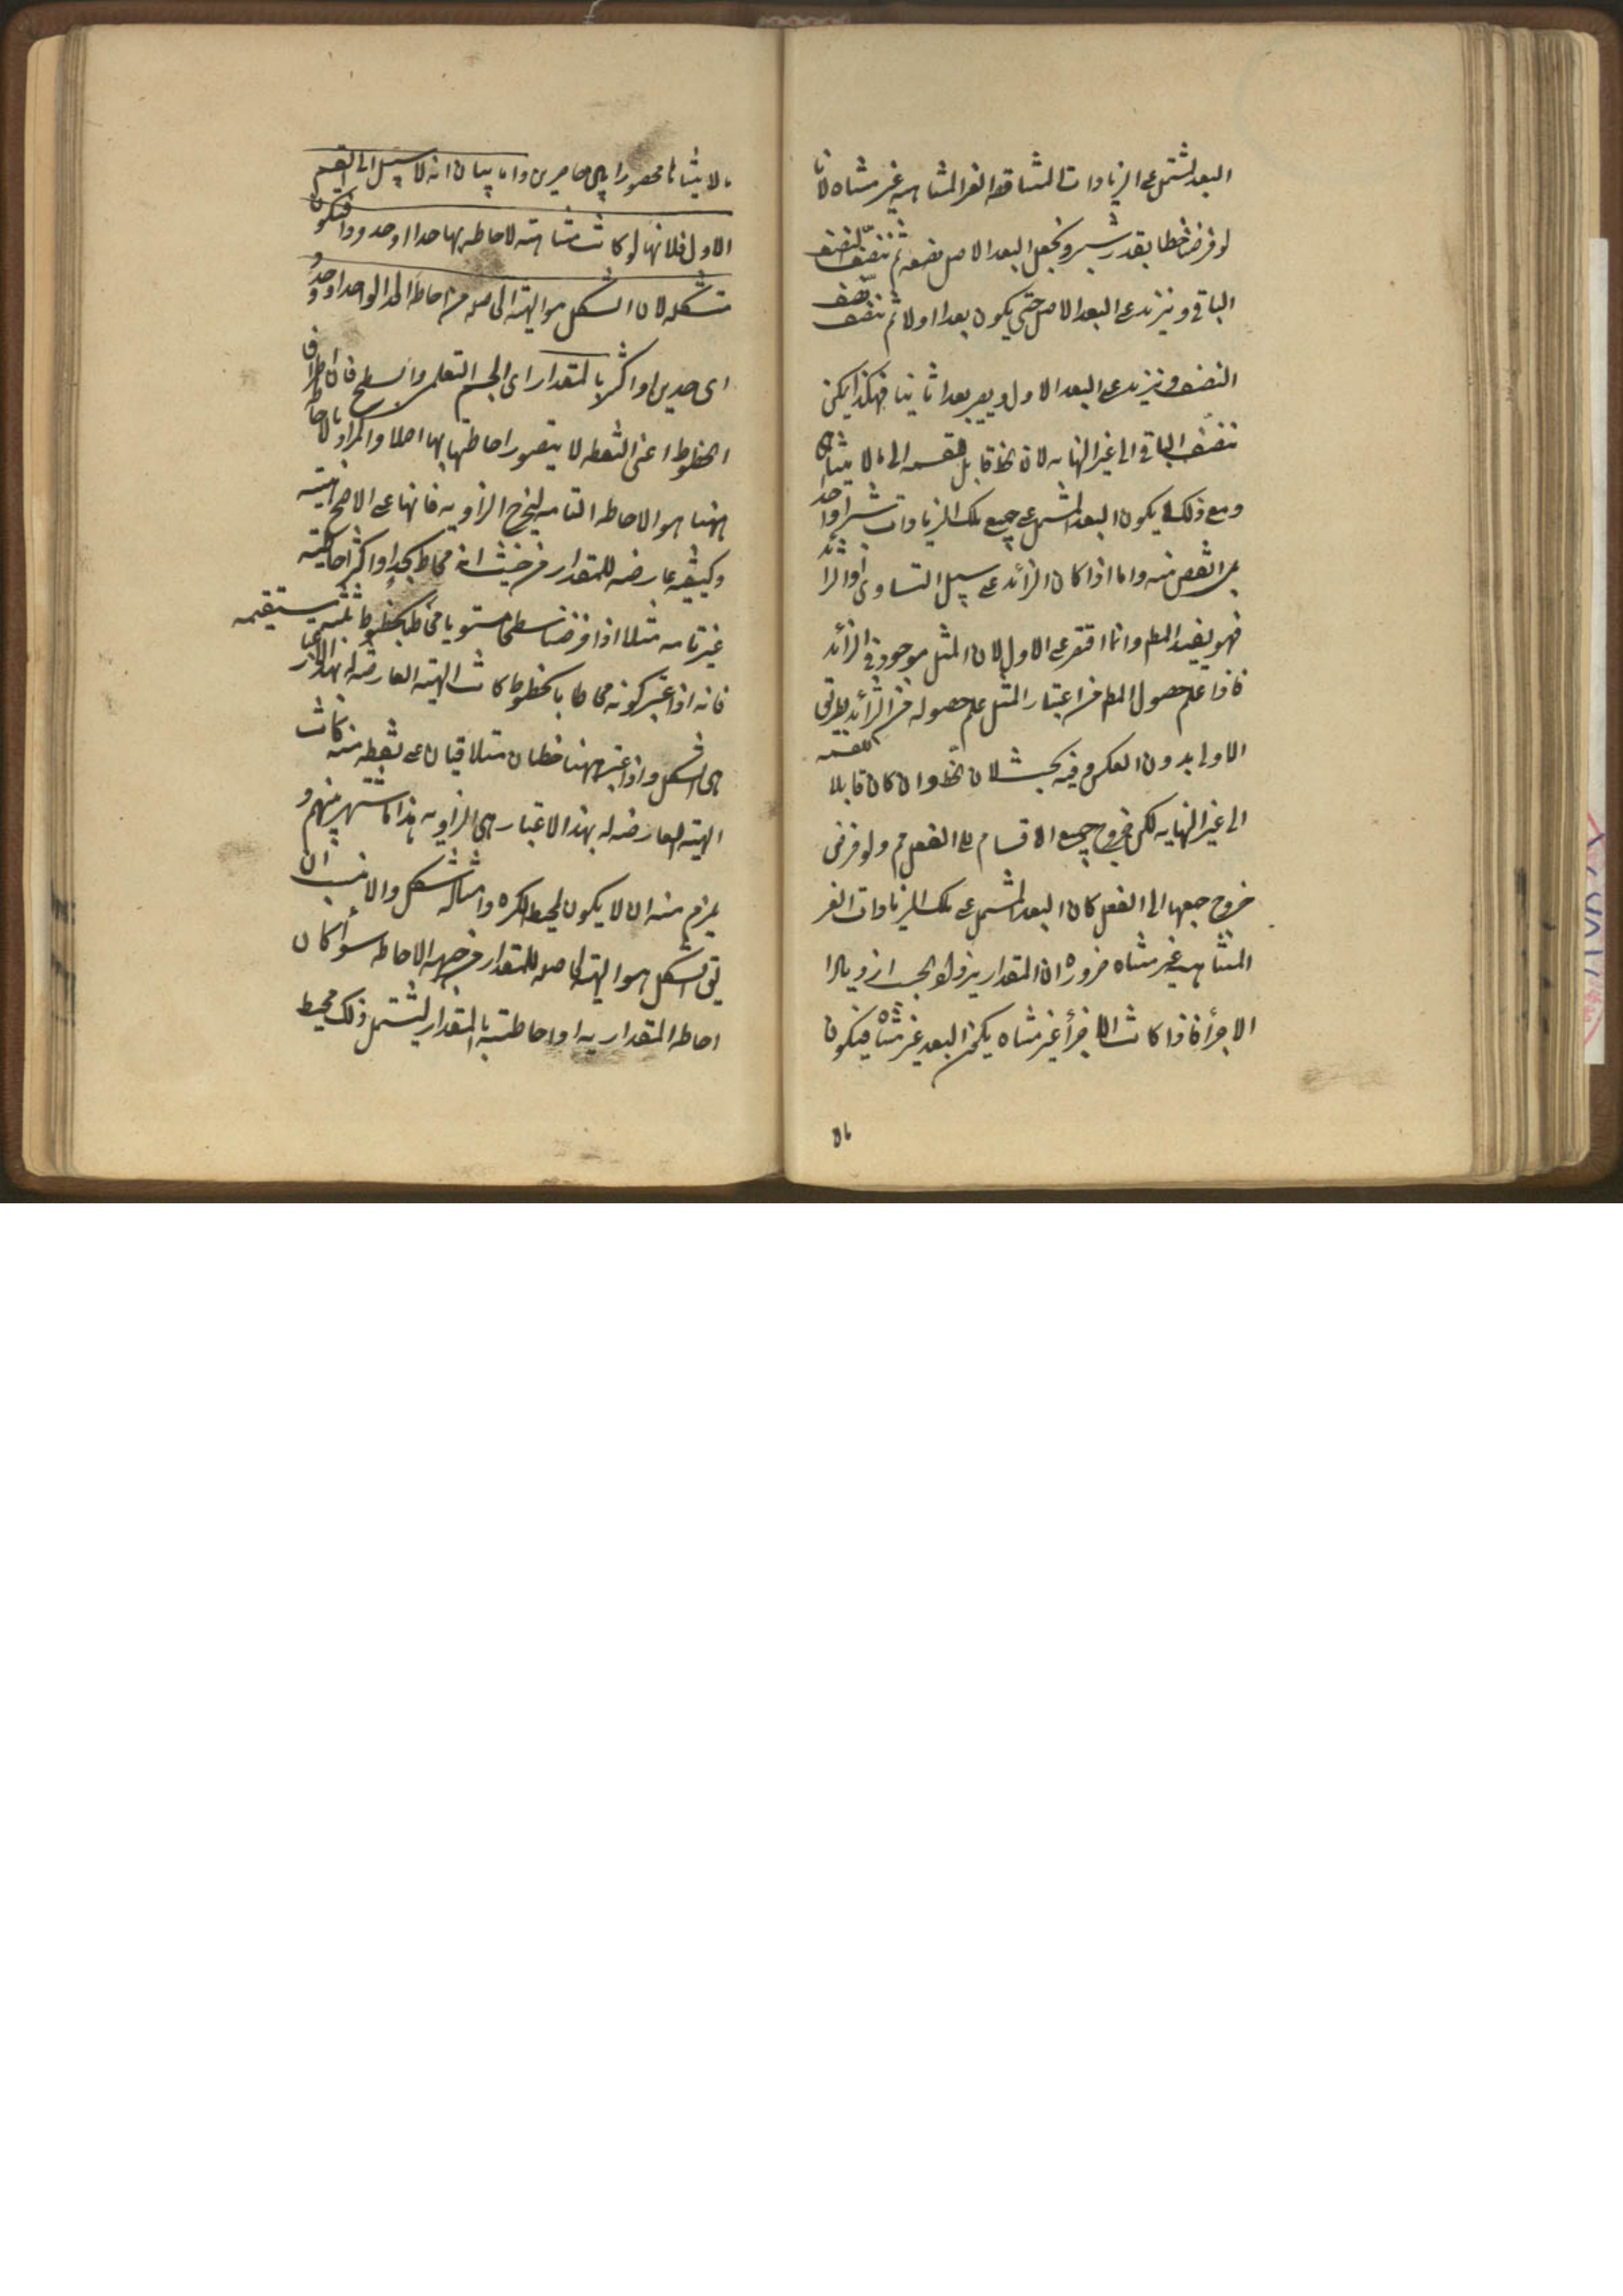 البعد المشتمل على الزيادات المتناقصة الغير المتناهية غير متناه لانا
لو فرضنا خطا بقدر شبر ونجعل البعد الاصل نصفه ثم ننصف النصف
الباقي ونزيد على البعد الاصل حتى يكون بعدا اولا ثم ننصف
النصف ونزيد على البعد الاول ويصير بعدا ثانيا فهكذا يمكن
تنصيف الباقي الى غير النهاية لان الخط قابل للقسمة الى ما لا يتناهى
ومع ذلك لا يكون البعد المشتمل على جميع تلك الزيادات شبرا واحدا
بل انقص منه واما اذا كان الزائد على سبيل التساوى او الزائد
فهو يفيد المطم وانما اقتصر على الاول لان المثل موجود فى الزائد
فاذا علم حصول المطم من اعتبار المثل علم حصوله من الزائد بطريق
الاولى بدون العكس وفيه بحث لان الخط وان كان قابلا للقسمة
الى غير النهاية لكن خروج جميع الاقسام الى الفعل مم ولو فرض
خروج جميعها الى الفعل كان البعد المشتمل على تلك الزيادات الغير
المتناهية غير متناه ضرورة ان المقدار يزداد بحسب ازدياد
الاجزأ فاذا كانت الاجزأ غير متناه يكون البعد غير متناه فيكون
ما لا
ما لا يتناهى محصورا بين حاصرين واما بيان انه لا سبيل الى القسم
الاول فلانها لو كانت متناهية لاحاط بها حد او حدود فتكون
متشكلة لان الشكل هو الهيئة الحاصلة من احاطة الحد الواحد او حدود
اى حدين او اكثر بالمقدار اى الجسم التعليمى والسطح فان اطراف
الخطوط اعنى النقطة لا يتصور احاطتها بها اصلا والمراد بالاحاطة
ههنا هو الاحاطة التامة ليخرج الزاوية فانها على الاصح هيئة
وكيفية عارضة للمقدار من حيث انه محاط بحد او اكثر احاطة
غير تامة مثلا اذا فرضنا سطحا مستويا محاطا بخطوط ثلثة مستقيمة
فانه اذا اعتبر كونه محاطا بالخطوط كانت الهيئة العارضة له بهذا الاعتبار
هى الشكل واذا اعتبر منها خطان متلاقيان على نقطة منه كانت
الهيئة العارضة له بهذا الاعتبار هى الزاوية هذا ما اشتهر بينهم و
يلزم منه ان لا يكون لمحيط الكرة وامثاله شكل والانسب ان
يق الشكل هو الهيئة الحاصلة للمقدار من جهة الاحاطة سوأ كان
احاطة المقدار به او احاطته بالمقدار ليشتمل ذلك محيط